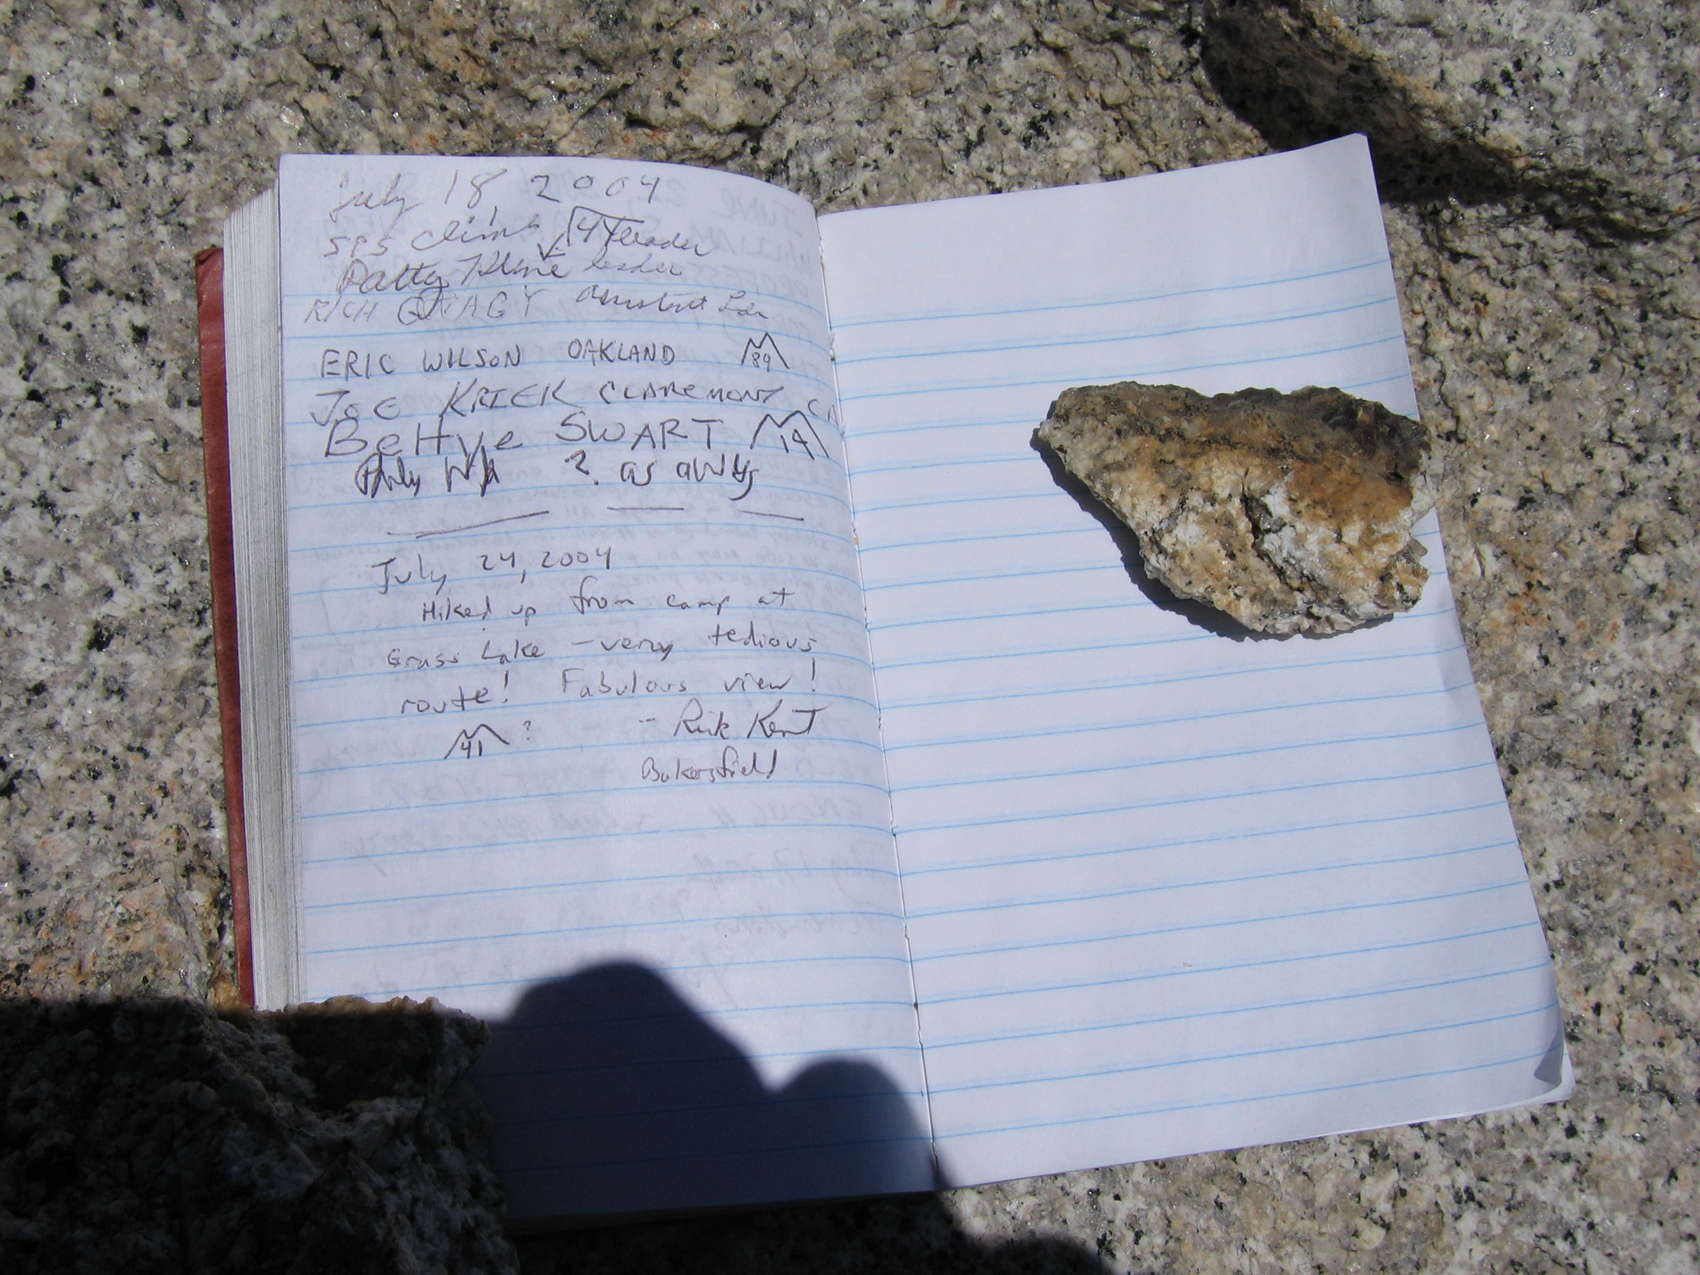 July 18 2004
SPS Climb leader
Patty Kline leader
RICH
ERIC WILSON OAKLAND 89
JOE KRIEK CLAREMONT CA
SWART 14
? as always
July 24, 2004
Hiked up from camp at
Grass Lake - very tedious
route! Fabulous view!
41 ? -- Rick Kent
Bakersfield